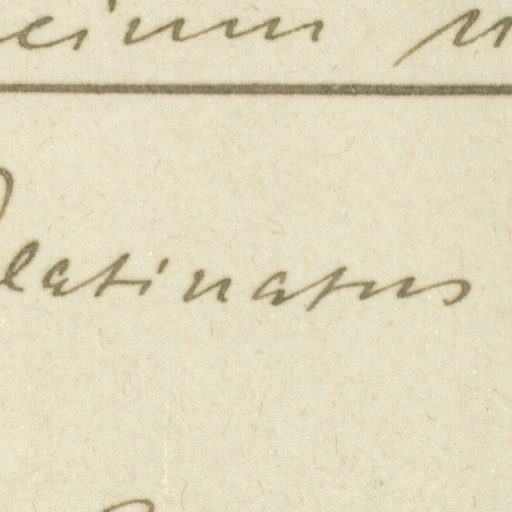 cium
Palatinatus